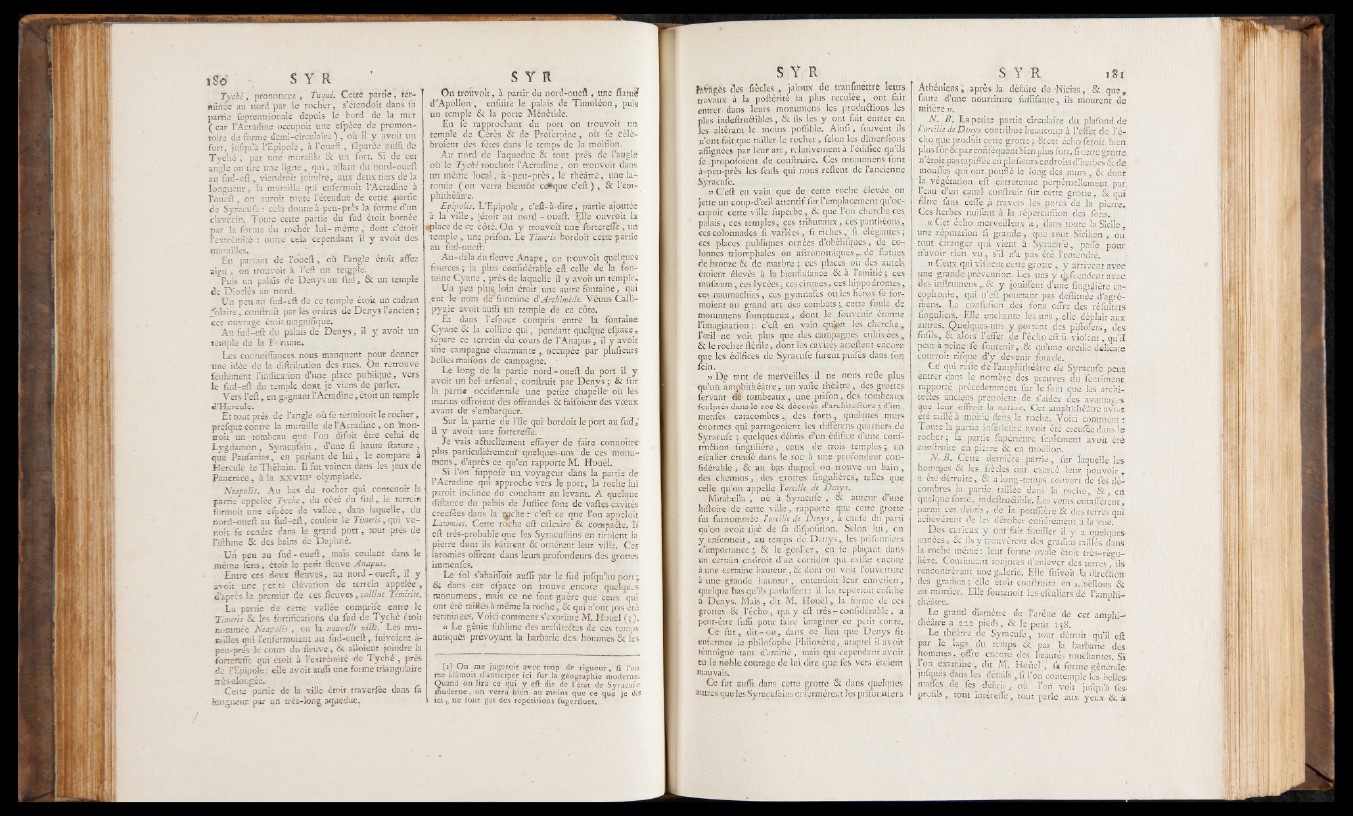 180 SYR
Tyché, prononcez, Tuqué. Cette partie, ter-
minée au nord par le rocher, s'étendoit dans sa
partie septentrionale depuis le bord de la mer
(car l'Acradine occupoit une espèce de promon-
toire de forme demi-circulaire), où il y avoit un
fort, jusqu'à l'Epipole, à l'ouest, séparée aussi de
Tyché, par une muraille & un fort. Si de cet
angle on tire une ligne, qui, allant du nord-ouest
au sud-est, viendroit joindre, aux deux tiers de la
longueur, la muraille qui enfermoit l'Acradine à
l'ouest, on auroit toute l'étendue de cette partie
de Syracuse: cela donne à-peu-près la forme d'un
clavecin. Toute cette partie du sud étoit bornée
par la forme du rocher lui-même, dont c'étoit
l'extrémité: outre cela cependant il y avoit des
murailles.
En partant de l'ouest, où l'angle étoit assez
aigu, on trouvoit à l'est un temple.
Puis un palais de Denys au sud, & un temple
de Dioclès au nord.
Un peu au sud-est de ce temple étoit un cadran
solaire, construit par les ordres de Denys l'ancien;
cet ouvrage étoit magnifique.
Au sud-est du palais de Denys, il y avoit un
temple de la Fortune.
Les connoissances nous manquent pour donner
une idée de la distribution des rues. On retrouve
seulement l'indication d'une place publique, vers
le sud-est du temple dont je viens de parler.
Vers l'est, en gagnant l'Acradine, étoit un temple
d'Hercule.
Et tout près de l'angle où se terminoit le rocher,
presque contre la muraille de l'Acradine, on mon-
troit un tombeau que l'on disoit être celui de
Lygdamon, Syracusain, d'une si haute stature,
que Pausanias, en parlant de lui, le compare à
Hercule le Thébain. Il fut vaincu dans les jeux de
Pancrace, à la XXVIIIe olympiade.
Neapolis. Au bas du rocher qui contenoit la
partie appelée Tyche, du côté du sud, le terrein
formoit une espèce de vallée, dans laquelle, du
nord-ouest au sud-est, couloir le Timeris, qui ve-
noit se rendre dans le grand port, tout près de
l'isthme & des bains de Daphné.
Un peu au sud-ouest, mais coulant dans le
même sens, étoit le petit fleuve Anapus.
Entre ces deux fleuves, au nord-ouest, il y
avoit une petite élévation de terrein appelée,
d'après le premier de ces fleuves, colline Temirite.
La partie de cette vallée comprise entre le
Timeris & les fortifications du sud de Tyché étoit
nommée Neapolis, ou la nouvelle ville. Les mu-
railles qui l'enfermoient au sud-ouest, suivoient à-
peu-près le cours du fleuve, & alloient joindre la
forteresse qui étoit à l'extrémité de Tyché, près
de l'Epipole: elle avoit aussi une forme triangulaire
très-alongée.
Cette partie de la ville étoit traversée dans sa
longueur par un très-long aqueduc.
SYR
On trouvoit, à partir du nord-ouest, une statue
d'Apollon, ensuite le palais de Timoléon, puis
un temple & la porte Ménétide.
En se rapprochant du port on trouvoit un
temple de Cérès & de Proserpine, où se célé-
broient des fêtes dans le temps de la moisson.
Au nord de l'aqueduc & tout près de l'angle
où le Tyché touchoit l'Acradine, on trouvoit dans
un même local, à-peu-près, le théâtre, une la-
tomie (on verra bientôt ce que c'est), & l'am-
phithéâtre.
Epipolis. L'Epipole, c'est-à-dire, partie ajoutée
à la ville, étoit au nord-ouest. Elle ouvroit la
place de ce côté. On y trouvoit une forteresse, un
temple, une prison. Le Timeris bordoit cette partie
au sud-ouest.
Au-delà du fleuve Anape, on trouvoit quelques
sources; la plus considérable est celle de la fon-
taine Cyane, près de laquelle il y avoit un temple.
Un peu plus loin étoit une autre fontaine, qui
eut le nom de fontaine d'Archimède. Vénus Calli-
pygie avoit aussi un temple de ce côte.
Et dans l'espace compris entre la fontaine
Cyane & la colline qui, pendant quelque espace,
sépare ce terrein du cours de l'Anapus, il y avoit
une campagne charmante, occupée par plusieurs
belles maisons de campagne.
Le long de la partie nord-ouest du port il y
avoit un bel arsenal, construit par Denys; & sur
la partie occidentale une petite chapelle où les
marins offroient des offrandes & faisoient des vœux
avant de s'embarquer.
Sur la partie de l'île qui bordoit le port au sud,
il y avoit une forteresse.
Je vais actuellement essayer de faire connoître
plus particulièrement quelques-uns de ces monu-
mens, d'après ce qu'en rapporte M. Houel.
Si l'on suppose un voyageur dans la partie de
l'Acradine qui approche vers le port, la roche lui
paroît inclinée du couchant au levant. A quelque
distance du palais de Justice sont de vastes cavités
creusées dans la roche: c'est ce que l'on appeloit
Latomies. Cette roche est calcaire & compacte. Il
est très-probable que les Syracusains en tirèrent la
pierre dont ils bâtirent & ornèrent leur ville. Ces
latomies offrent dans leurs profondeurs des grottes
immenses.
Le sol s'abaissoit aussi par le sud jusqu'au port;
& dans cet espace on trouve encore quelques
monumens, mais ce ne sont guère que ceux qui
ont été taillés à même la roche, & qui n'ont pas été
terminées. Voici comment s'exprime M. Houel (1).
« Le génie sublime des architectes de ces temps
antiques prévoyant la barbarie des hommes & les
(1) On me jugeroit avec trop de rigueur, si l'on
me blâmoit d'anticiper ici sur la géographie moderne.
Quand on lira ce qui y est dit de l'état de Syracuse
moderne, on verra bien au moins que ce que je dis
ici, ne sont pas des répétitions superflues.
SYR
ravages des siècles, jaloux de transmettre leurs
travaux à la postérité la plus reculée, ont fait
entrer dans leurs monumens les productions les
plus indestructibles, & ils les y ont fait entrer en
les altérant le moins possible. Ainsi, souvent ils
n'ont fait que tailler le rocher, selon les dimensions
assignées par leur art, relativement à l'édifice qu'ils
se proposoient de construire. Ces monumens sont
à-peu-près les seuls qui nous restent de l'ancienne
Syracuse.
» C'est en vain que de cette roche élevée on
jette un coup-d'œil attentif sur l'emplacement qu'oc-
cupoit cette ville superbe, & que l'on cherche ces
palais, ces temples, ces tribunaux, ces panthéons,
ces colonnades si variées, si riches, si élégantes;
ces places publiques ornées d'obélisques, de co-
lonnes triomphales ou astronomiques, de statues
de bronze & de marbre; ces places où des autels
étoient élevés à la bienfaisance & à l'amitié; ces
musœum, ces lycées, ces cirques, ces hippodromes,
ces naumachies, ces gymnases où les héros se for-
moient au grand art des combats; cette foule de
monumens somptueux, dont le souvenir étonne
l'imagination: c'est en vain qu'on les cherche,
l'œil ne voit plus que des campagnes cultivées,
& le rocher stérile, dont les cavités attestent encore
que les édifices de Syracuse furent puisés dans son
sein.
» De tant de merveilles il ne nous reste plus
qu'un amphithéâtre, un vaste théâtre, des grottes
servant de tombeaux, une prison, des tombeaux
sculptés dans le roc & décorés d'architecture; d'im-
menses catacombes, des forts, quelques murs
énormes qui partageoient les différens quartiers de
Syracuse; quelques débris d'un édifice d'une cons-
truction singulière, ceux de trois temples; un
escalier creusé dans le roc à une profondeur con-
sidérable, & au bas duquel on trouve un bain,
des chemins, des grottes singulières, telles que
celle qu'on appelle l'oreille de Denys.
Mirabella, né à Syracuse, & auteur d'une
histoire de cette ville, rapporte que cette grotte
fut surnommée l'oreille de Denys, à cause du parti
qu'on avoit tiré de sa disposition. Selon lui, on
y enfermoit, au temps de Denys, les prisonniers
d'importance; & le geolier, en se plaçant dans
un certain endroit d'un corridor qui existe encore
à une certaine hauteur, & dont on voit l'ouverture
à une grande hauteur, entendoit leur entretien,
quelque bas qu'ils parlassent: il les répétoit ensuite
à Denys. Mais, dit M. Houël, la forme de ces
grottes & l'écho, qui y est très-considérable, a
peut-être suffi pour faire imaginer ce petit conte.
Ce fut, dit-on, dans ce lieu que Denys fit
enfermer le philosophe Philoxène, auquel il avoit
témoigné tant d'amitié, mais qui cependant avoit
eu le noble courage de lui dire que ses vers étoient
mauvais.
Ce fut aussi dans cette grotte & dans quelques
autres que les Syracusains enfermèrent les prisonniers
SYR 181
Athéniens, après la défaite de Nicias, & que,
faute d'une nourriture suffisante, ils moururent de
misère ».
N. B. La petite partie circulaire du plafond de
l'oreille de Denys contribue beaucoup à l'effet de l'é-
cho que produit cette grotte; & cet écho seroit bien
plus sûr & par conséquent bien plus fort, si cette grotte
n'étoit pas tapissée en plusieurs endroits d'herbes & de
mousses qui ont poussé le long des murs, & dont
la végétation est entretenue perpétuellement par
l'eau d'un canal construit sur cette grotte, & qui
filtre sans cesse à travers les pores de la pierre.
Ces herbes nuisent à la répercussion des sons.
« Cet écho merveilleux a, dans toute la Sicile,
une réputation si grande, que tout Sicilien, ou
tout étranger qui vient à Syracuse, passe pour
n'avoir rien vu, s'il n'a pas été l'entendre.
» Ceux qui visitent cette grotte, y arrivent avec
une grande prévention. Les uns y descendent avec
des instrumens, & y jouissent d'une singulière ca-
cophonie, qui n'est pourtant pas destituée d'agré-
mens. La confusion des sons offre des résultats
singuliers. Elle enchante les uns, elle déplaît aux
autres. Quelques-uns y portent des pistolets, des
fusils, & alors l'effet de l'écho est si violent, qu'il
peut à peine se soutenir, & qu'une oreille délicate
courroit risque d'y devenir sourde.
Ce qui reste de l'amphithéâtre de Syracuse peut
entrer dans le nombre des preuves du sentiment
rapporté précédemment sur le soin que les archi-
tectes anciens prenoient de s'aider des avantages
que leur offroit la nature. Cet amphithéâtre avoit
été taillé à moitié dans le roche. Voici comment:
Toute la partie inférieure avoit été creusée dans le
rocher; la partie supérieure seulement avoit été
construite en pierre & en moëllon.
N. B. Cette dernière partie, sur laquelle les
hommes & les siècles ont exercé leur pouvoir,
a été détruite, & a long-temps couvert de ses dé-
combres la partie taillée dans la roche, &, en
quelque sorte, indestructible. Les vents entassèrent,
parmi ces débris, de la poussière & des terres qui
achevèrent de les dérober entièrement à la vue.
Des curieux y ont fait fouiller il y a quelques
années, & ils y trouvèrent des gradins taillés dans
la roche même: leur forme ovale étoit très-régu-
lière. Continuant toujours d'enlever des terres, ils
rencontrèrent une galerie. Elle suivoit la direction
des gradins; elle étoit construite en moëllons &
en mortier. Elle soutenoit les escaliers de l'amphi-
théâtre.
Le grand diamètre de l'arène de cet amphi-
théâtre a 222 pieds, & le petit 138.
Le théâtre de Syracuse, tout détruit qu'il est
par le laps du temps & par la barbarie des
hommes, offre encore des beautés touchantes. Si
l'on examine, dit M. Houel, sa forme générale
jusques dans les détails, si l'on contemple les belles
masses de ses débris, où l'on voit jusqu'à ses
profils, tout intéresse, tout parle aux yeux & à